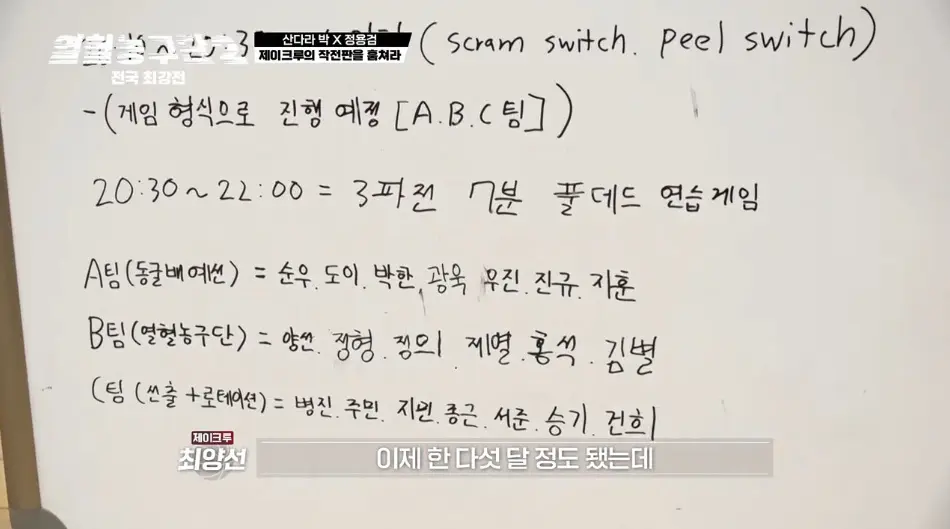 열혈농구단
전국 최강전
산다라 박 X 정용검
제이크루의 작전판을 훔쳐라
(scram switch. peel switch)
-(게임 형식으로 진행 예정 [A.B.C팀])
20:30~22:00 = 3파전 7분 풀데드 연습게임
A팀(동굴배 예선) = 순우.도이.박한.광욱.우진.진규.지훈
B팀(열혈농구단) = 양선.정형.정의.재별.홍석.김별
C팀 (쓰출+로테이션) = 병진.주민.지빈.종근.서준.승기.건희
제이크루
최양선
이제 한 다섯 달 정도 됐는데